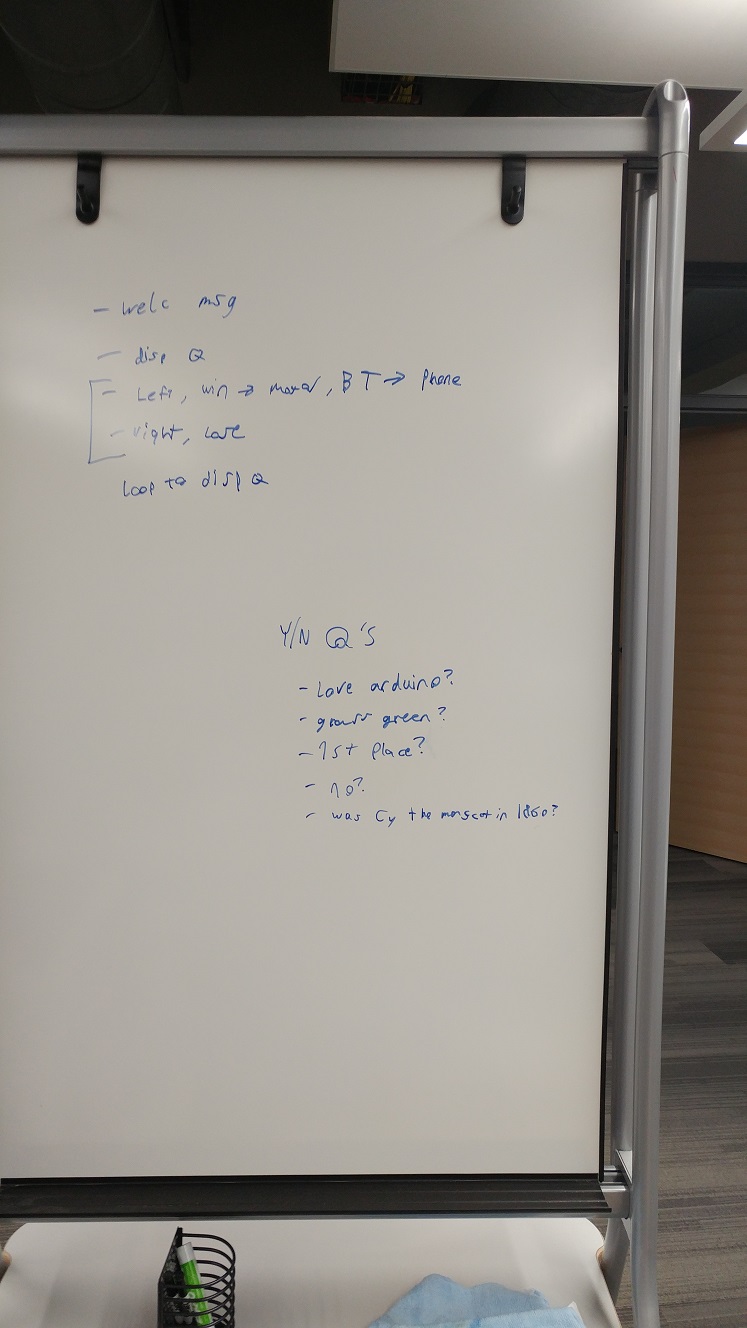 - welc msg
- disp Q
- Left, win → motor, BT → Phone
- right, lose
Loop to disp Q
Y/N Q's
- Love arduino?
- grass green?
- 1st place?
- no?
- was Cy the mascot in 1860?